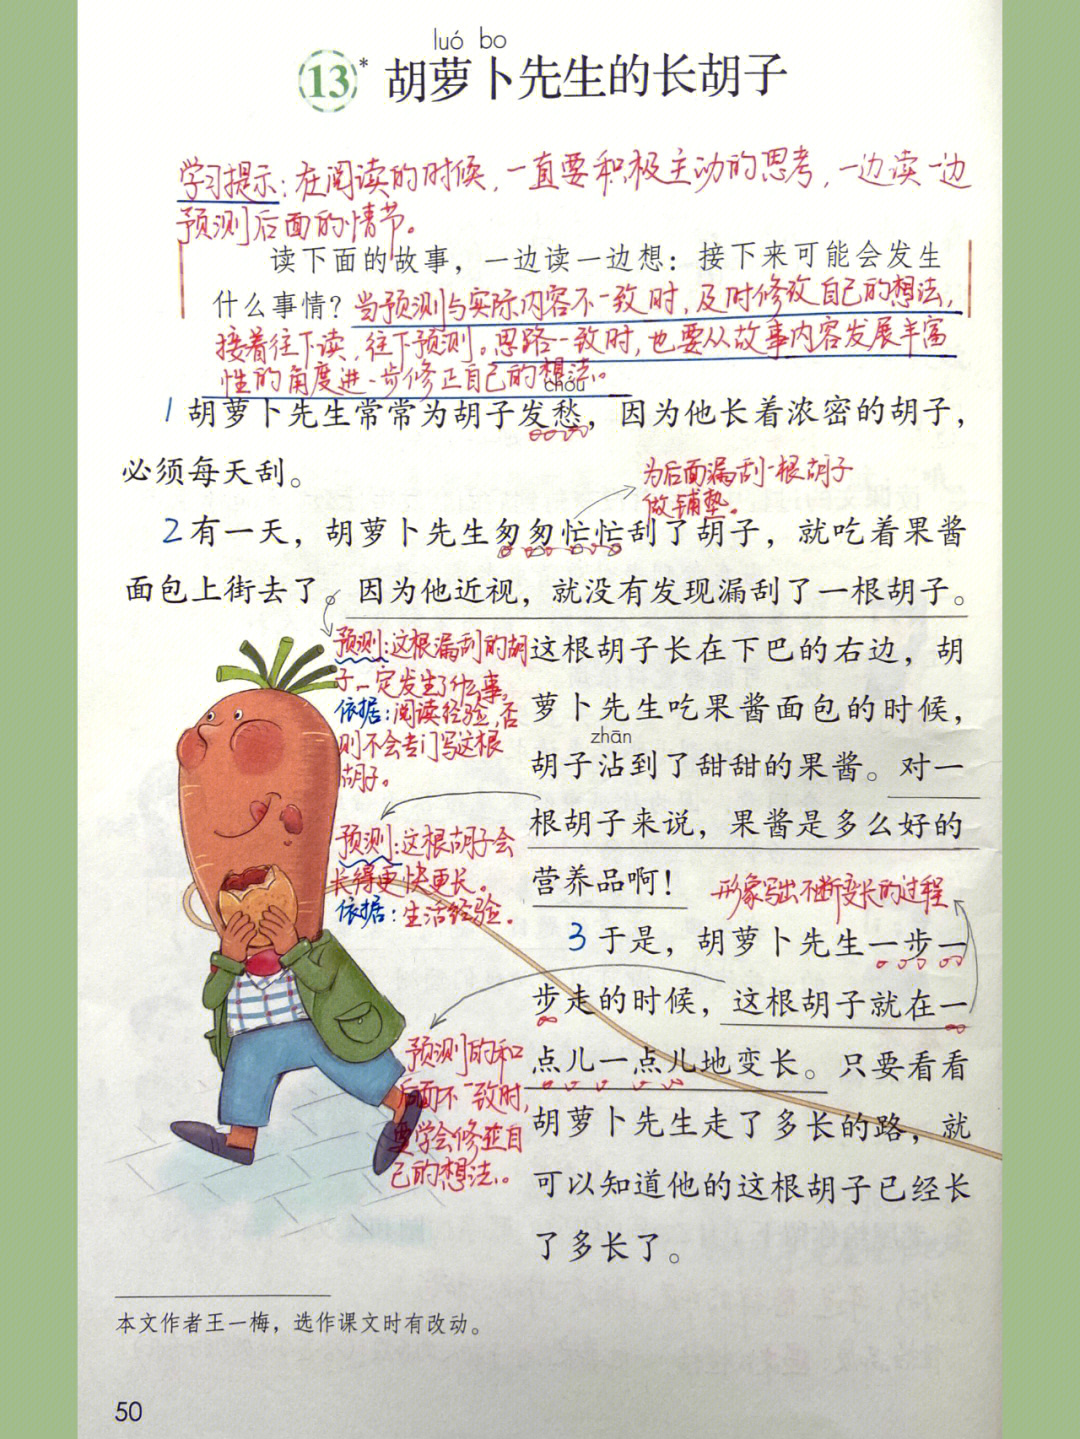 luó bo
13* 胡萝卜先生的长胡子
学习提示:在阅读的时候,一直要积极主动的思考,一边读一边
预测后面的情节。
读下面的故事，一边读一边想：接下来可能会发生
什么事情？当预测与实际内容不一致时,及时修改自己的想法,
接着往下读,往下预测。思路一致时,也要从故事内容发展丰富
性的角度进一步修正自己的想法。
chóu
1 胡萝卜先生常常为胡子发愁，因为他长着浓密的胡子，
必须每天刮。
为后面漏刮一根胡子
做铺垫。
2 有一天，胡萝卜先生匆匆忙忙刮了胡子，就吃着果酱
面包上街去了。因为他近视，就没有发现漏刮了一根胡子。
预测:这根漏刮的胡
子一定发生了什么事,
依据:阅读经验,否
则不会专门写这根
胡子。
这根胡子长在下巴的右边，胡
萝卜先生吃果酱面包的时候，
zhān
胡子沾到了甜甜的果酱。对一
根胡子来说，果酱是多么好的
营养品啊！
预测:这根胡子会
长得更快更长。
依据:生活经验。
形象写出不断变长的过程
3 于是，胡萝卜先生一步一
步走的时候，这根胡子就在一
点儿一点儿地变长。只要看看
胡萝卜先生走了多长的路，就
可以知道他的这根胡子已经长
了多长了。
预测的和
后面不一致时,
要学会修正自
己的想法。
本文作者王一梅，选作课文时有改动。
50